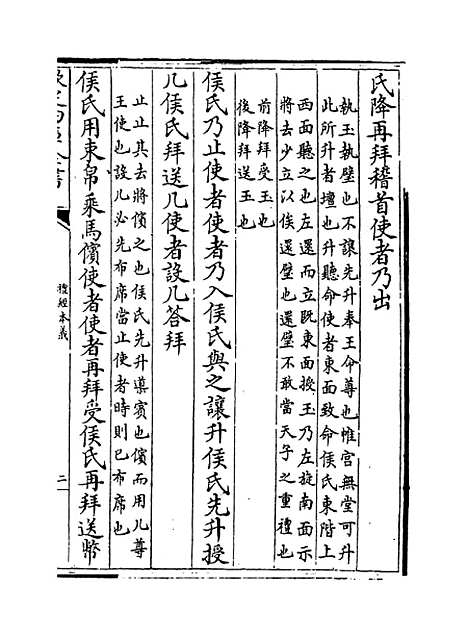 氏降再拜稽首使者乃出
執玉執璧也不讓先升奉王命尊也惟宫無堂可升
此所升者壇也升聽命使者東面致命侯氏東階上
西面聽之也左還而立既東面授玉乃左旋南面示
將去少立以俟還璧也還璧不敢當天子之重禮也
前降拜受玉也
後降拜送玉也
侯氏乃止使者使者乃入侯氏與之讓升侯氏先升授
几侯氏拜送几使者設几答拜
止止其去將儐之也侯氏先升導賓也儐而用几尊
王使也設几必先布席當止使者時則已布席也
侯氏用束帛乘馬儐使者使者再拜受侯氏再拜送幣
欽定四庫全書
禮經本義
二